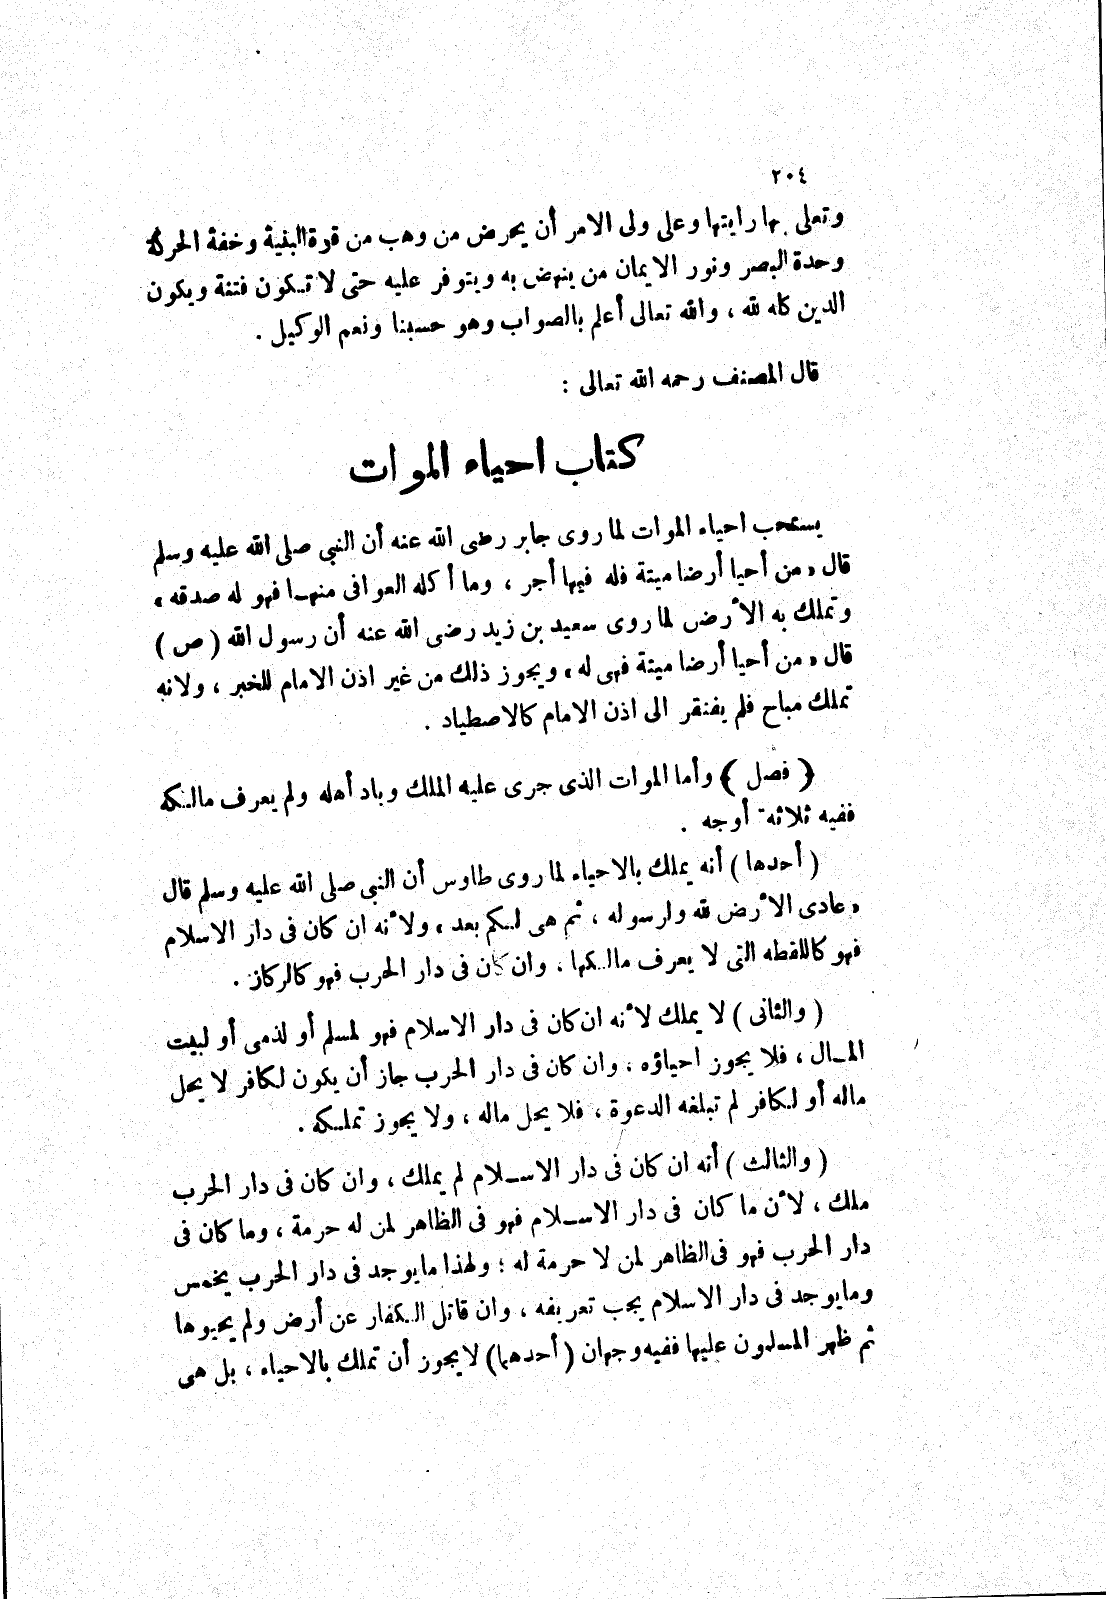 ٢٠٤
وتعلى بها رايتها وعلى ولى الامر أن يحرض من وهب من قوة البنية وخفة الحركة
وحدة البصر ونور الايمان من ينهض به ويتوفر عليه حتى لا تكون فتنة ويكون
الدين كله لله ، والله تعالى أعلم بالصواب وهو حسبنا ونعم الوكيل .
قال المصنف رحمه الله تعالى :
كتاب احياء الموات
يستحب احياء الموات لما روى جابر رضى الله عنه أن النبى صلى الله عليه وسلم
قال « من أحيا أرضا ميتة فله فيها أجر ، وما أكله العوافى منها فهو له صدقه »
وتملك به الأرض لما روى سعيد بن زيد رضى الله عنه أن رسول الله ( ص )
قال « من أحيا أرضا ميتة فهى له » ويجوز ذلك من غير اذن الامام للخبر ، ولانه
تملك مباح فلم يفتقر الى اذن الامام كالاصطياد .
﴿ فصل ﴾ وأما الموات الذى جرى عليه الملك وباد أهله ولم يعرف مالكه
ففيه ثلاثة أوجه .
( أحدها ) أنه يملك بالاحياء لما روى طاوس أن النبى صلى الله عليه وسلم قال
« عادى الأرض لله ولرسوله ، ثم هى لكم بعد » ولأنه ان كان فى دار الاسلام
فهو كاللقطه التى لا يعرف مالكها ، وان كان فى دار الحرب فهو كالركاز .
( والثانى ) لا يملك لأنه ان كان فى دار الاسلام فهو لمسلم أو لذمى أو لبيت
المال ، فلا يجوز احياؤه ، وان كان فى دار الحرب جاز أن يكون لكافر لا يحل
ماله أو لكافر لم تبلغه الدعوة ، فلا يحل ماله ، ولا يجوز تملكه .
( والثالث ) أنه ان كان فى دار الاسلام لم يملك ، وان كان فى دار الحرب
ملك ، لأن ما كان فى دار الاسلام فهو فى الظاهر لمن له حرمة ، وما كان فى
دار الحرب فهو فى الظاهر لمن لا حرمة له ؛ ولهذا ما يوجد فى دار الحرب يخمس
وما يوجد فى دار الاسلام يجب تعريفه ، وان قاتل الكفار عن أرض ولم يحيوها
ثم ظهر المسلمون عليها ففيه وجهان ( أحدهما ) لا يجوز أن تملك بالاحياء ، بل هى